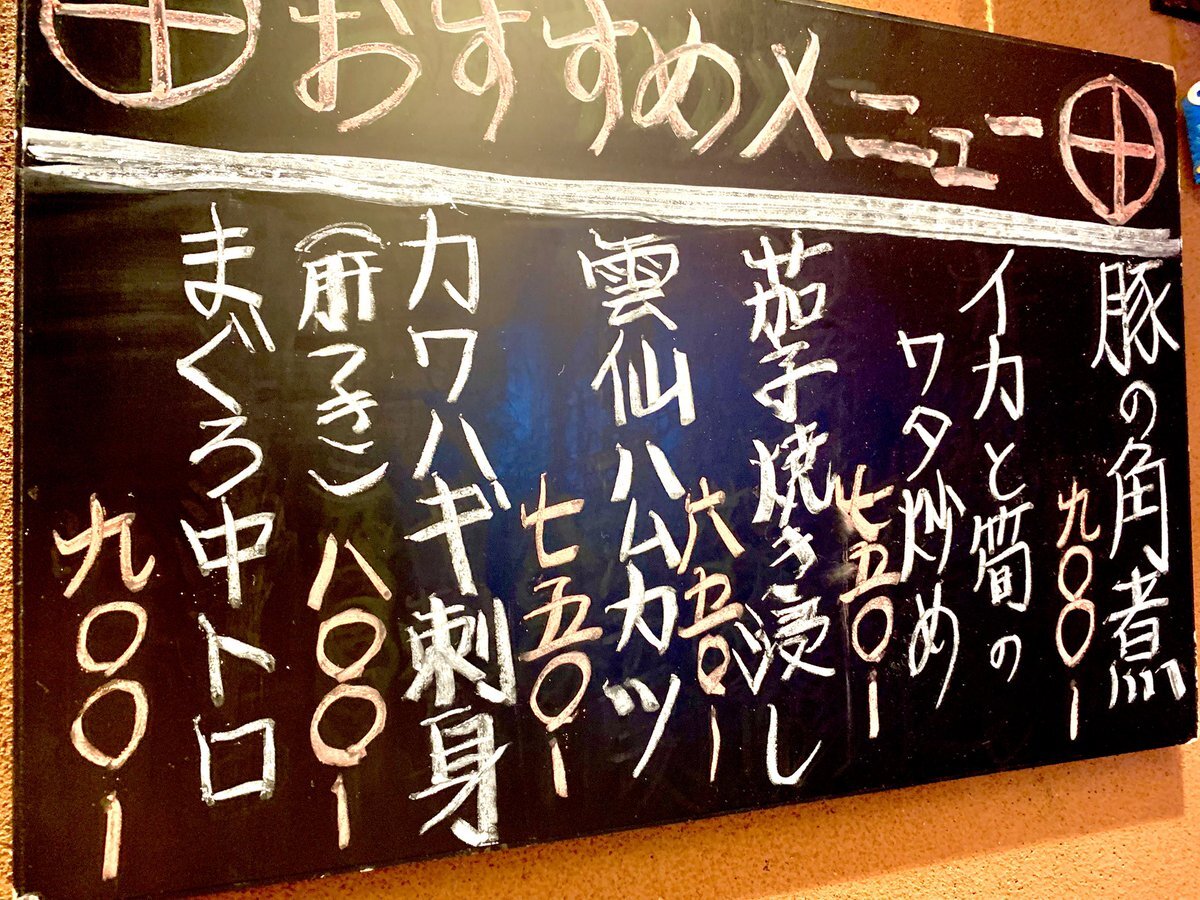 おすすめメニュー
豚の角煮
九〇〇ー
イカと筍の
ワタ炒め
七五〇ー
茄子焼き浸し
六五〇ー
雲仙ハムカツ
七五〇ー
カワハギ刺身
（肝つき）
八〇〇ー
まぐろ中トロ
九〇〇ー